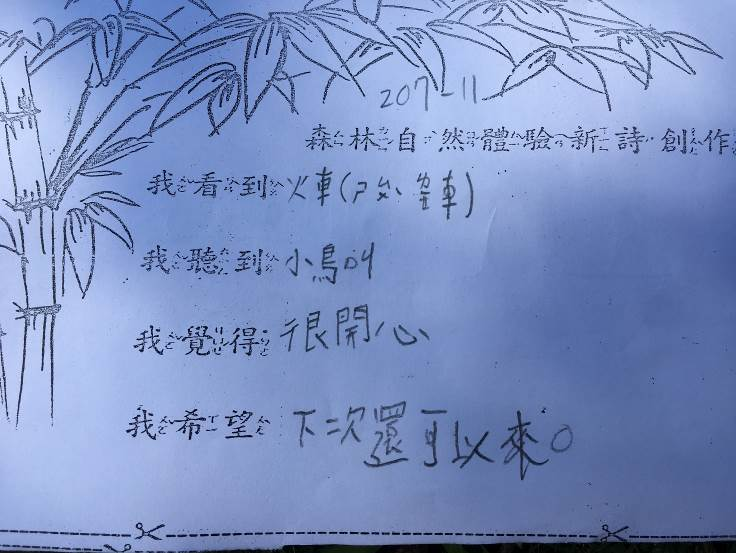 207-11
森林自然體驗新詩創作
我看到火車(ㄗㄨˋ車)
我聽到小鳥叫
我覺得很開心
我希望下次還可以來。